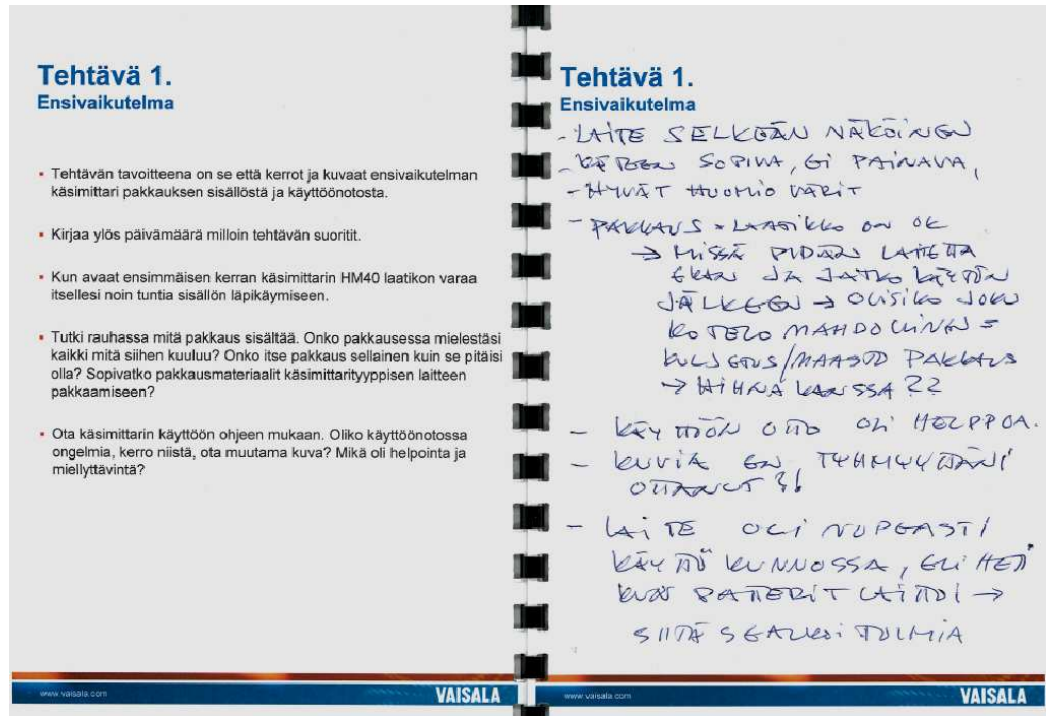 Tehtävä 1.
Ensivaikutelma
Tehtävän tavoitteena on se että kerrot ja kuvaat ensivaikutelman
käsimittari pakkauksen sisällöstä ja käyttöönotosta.
Kirjaa ylös päivämäärä milloin tehtävän suoritit.
Kun avaat ensimmäisen kerran käsimittarin HM40 laatikon varaa
itsellesi noin tuntia sisällön läpikäymiseen.
Tutki rauhassa mitä pakkaus sisältää. Onko pakkausessa mielestäsi
kaikki mitä siihen kuuluu? Onko itse pakkaus sellainen kuin se pitäisi
olla? Sopivatko pakkausmateriaalit käsimittarityyppisen laitteen
pakkaamiseen?
Ota käsimittarin käyttöön ohjeen mukaan. Oliko käyttöönotossa
ongelmia, kerro niistä, ota muutama kuva? Mikä oli helpointa ja
miellyttävintä?
www.vaisala.com
VAISALA
Tehtävä 1.
Ensivaikutelma
- LAITE SELKEÄN NÄKÖINEN
- KÄTEEN SOPIVA, EI PAINAVA,
- HYVÄT HUOMIO VÄRIT
- PAKKAUS = LAATIKKO ON OK
→ MISSÄ PIDÄN LAITETTA
EKAN JA JATKO KÄYTÖN
JÄLKEEN → OLISIKO JOKU
KOTELO MAHDOLLINEN =
KULJETUS/MAASTO PAKKAUS
→ HIHNA KANSSA ??
- KÄYTTÖÖN OTTO OLI HELPPOA.
- KUVIA EN, TYHMYYTTÄNI
OTTANUT ?!
- LAITE OLI NOPEASTI
KÄYTTÖ KUNNOSSA, ELI HETI
KUN PATTERIT LAITTOI →
SIITÄ SE ALKOI TULMIA
www.vaisala.com
VAISALA